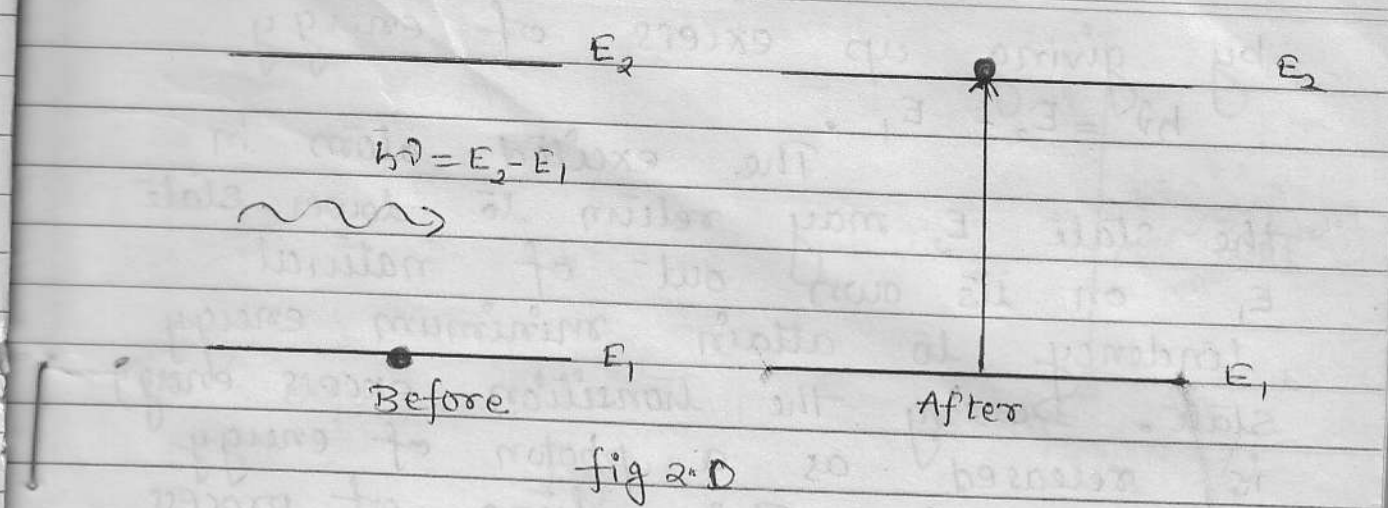 E₂ E₂
hν = E₂ - E₁
E₁ E₁
Before After
fig 2.0